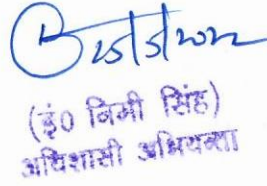 25/5/2022
(इं० निमी सिंह)
अधिशासी अभियन्ता